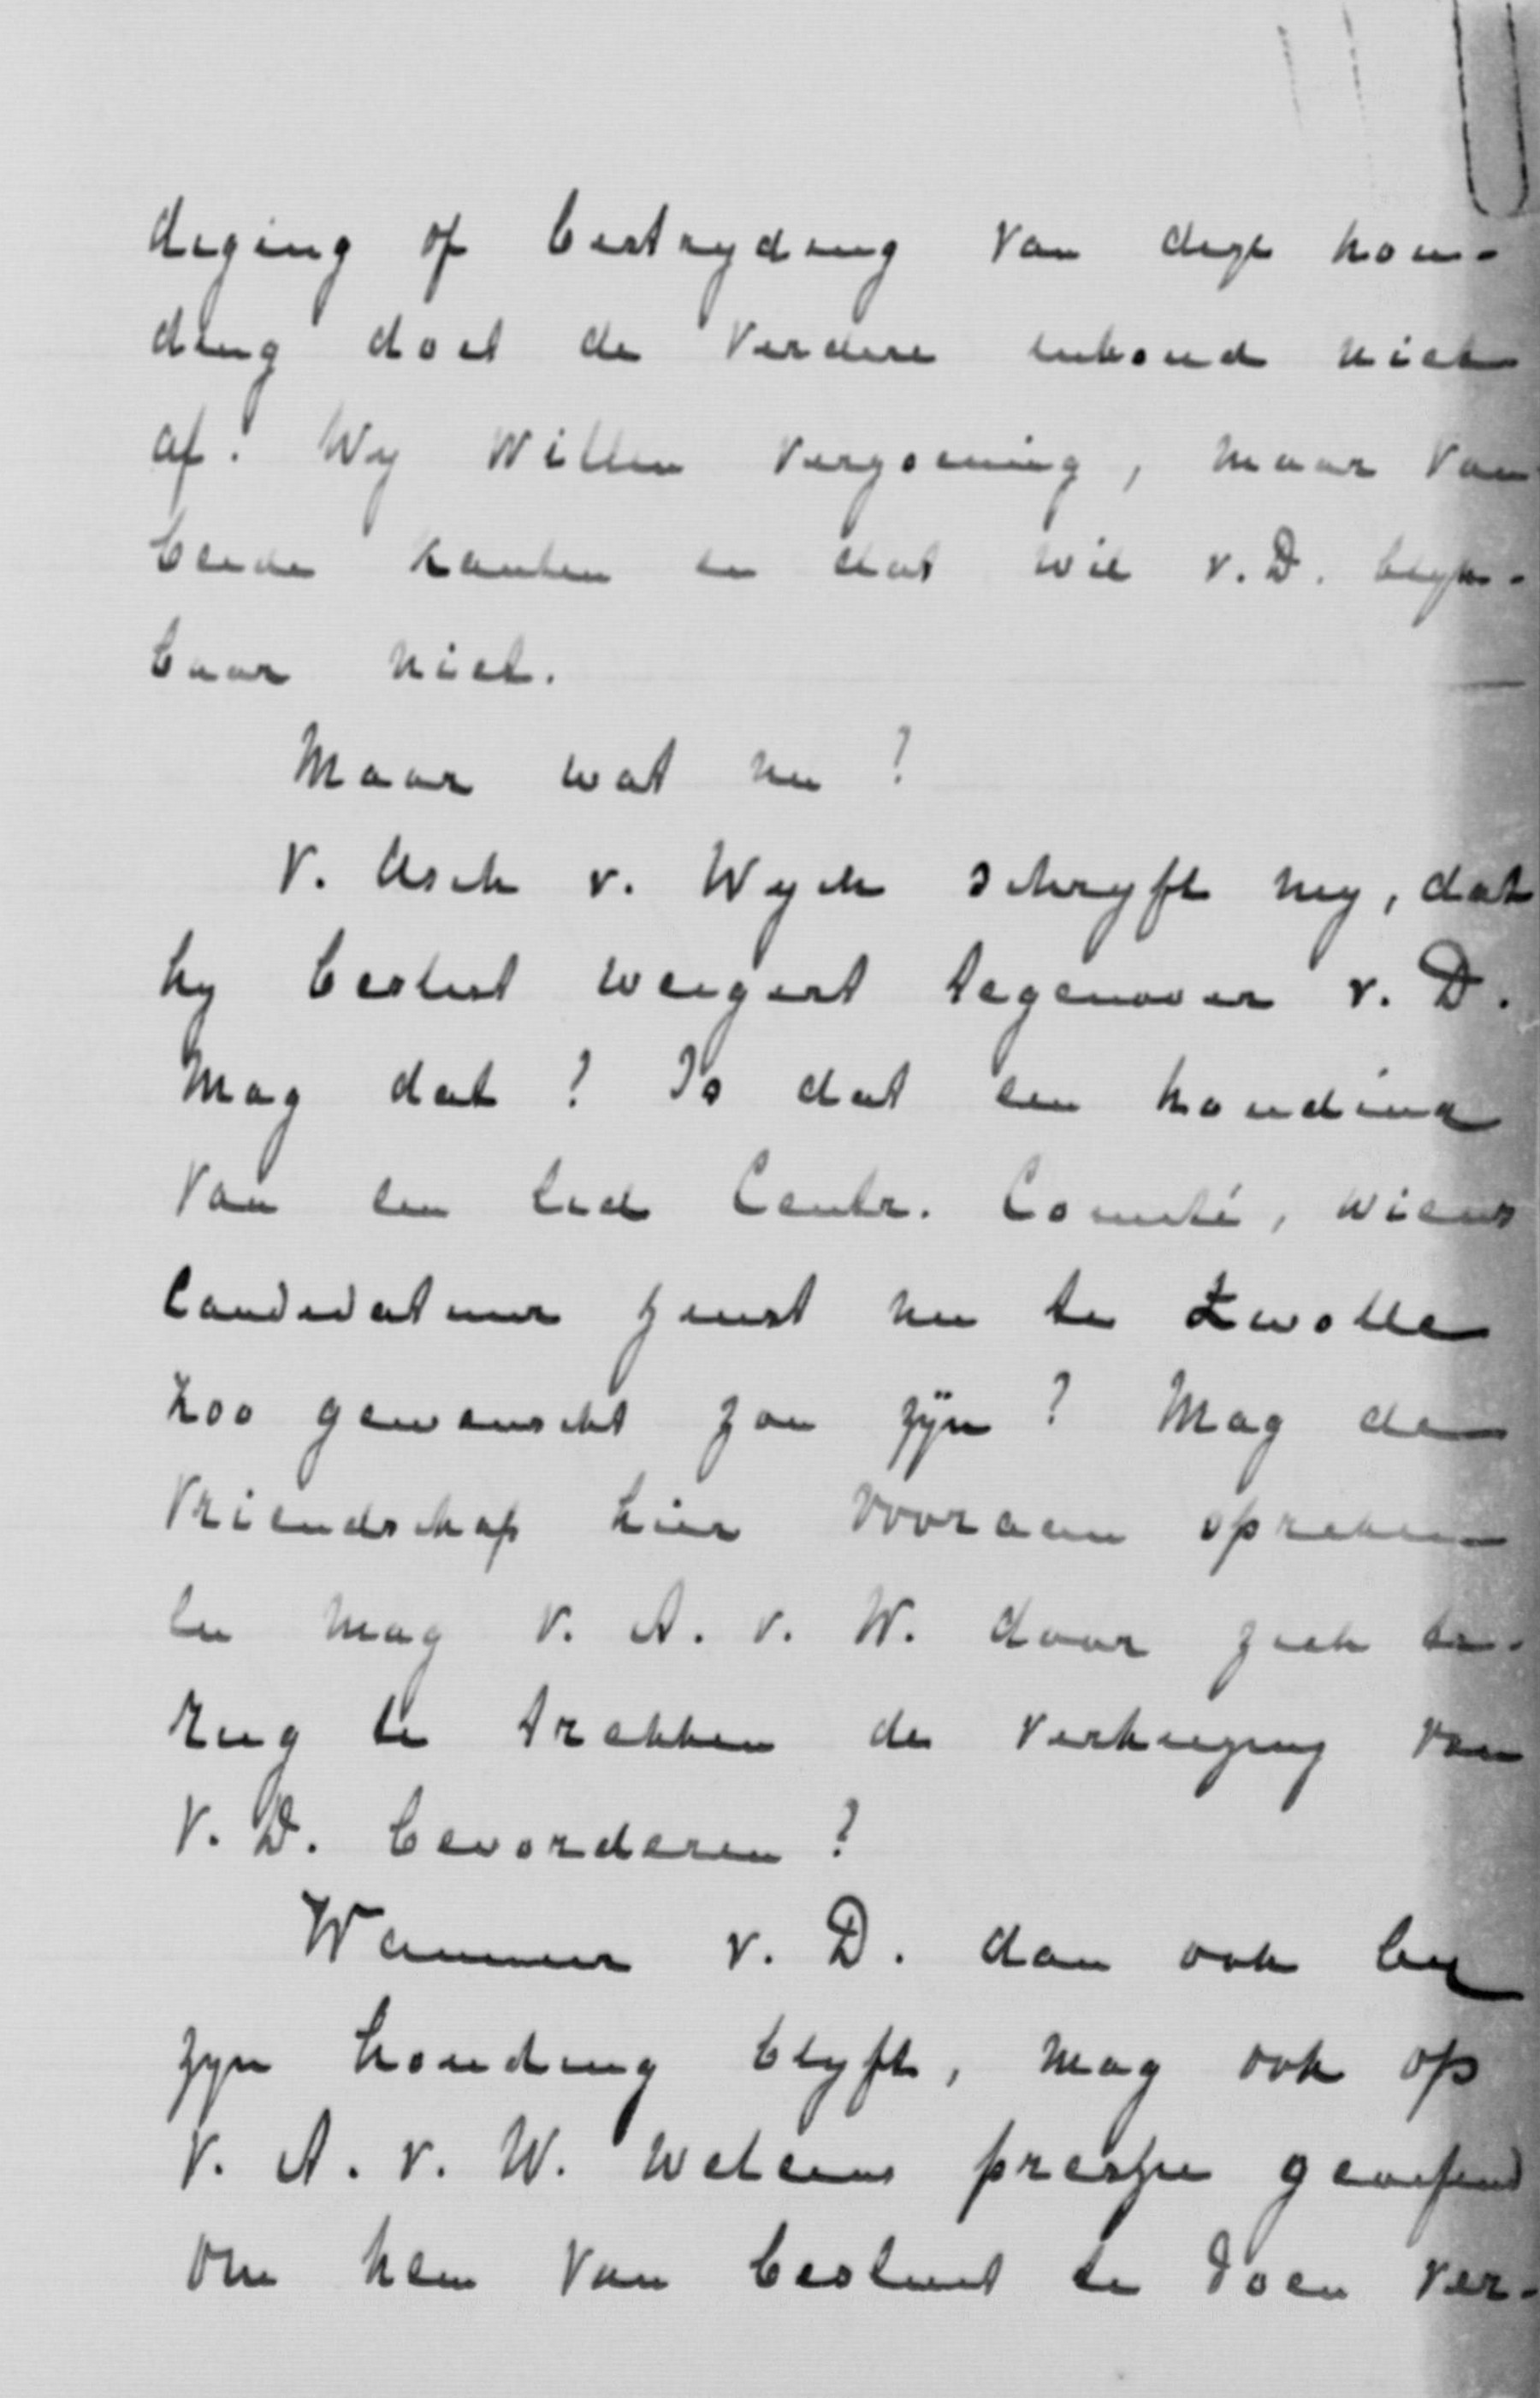 diging of bestryding van deze hou-
ding doet de verdere inhoud niets
af. Wy willen verzoening, maar van
beide kanten en dat wil v. D. blyk-
baar niet.
Maar wat nu?
V. Asch v. Wyck schryft my, dat
hy beslist weigert tegenover v. D.
Mag dat? Is dat een houding
van een lid Centr. Comité, wiens
Candidatuur juist nu te Zwolle
zoo gewenscht zou zyn? Mag de
vriendschap hier vooraan
en mag v. A. v. W. door zich te-
rug te trekken de verkiezing van
V. D. bevorderen?
Wanneer v. D. dan ook by
zyn houding blyft, mag ook op
V. A. v. W. weleens pressie geoefend
om hem van besluit te doen ver-